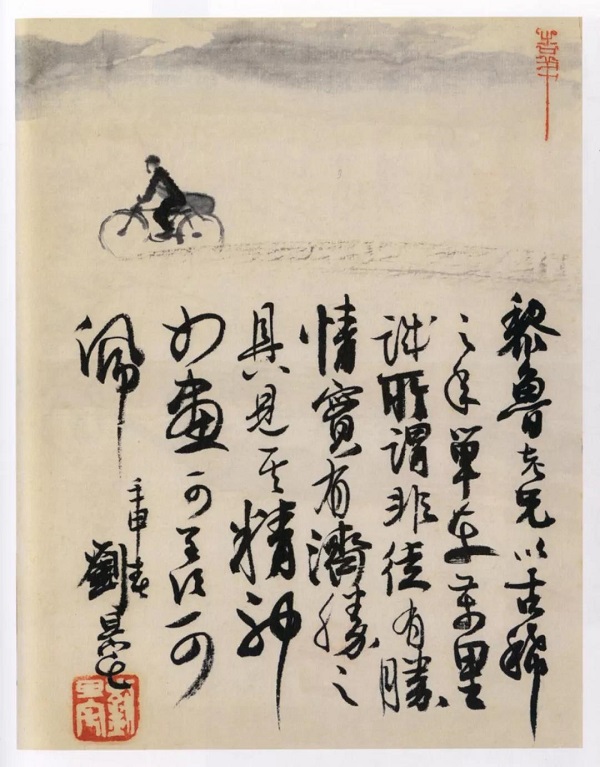 黎魯老兄以古稀
之年單車萬里
誠所謂非徒有勝
情實有濟勝之
具見其精神
如畫可羨可
佩
壬申春
劉旦宅
劉旦宅